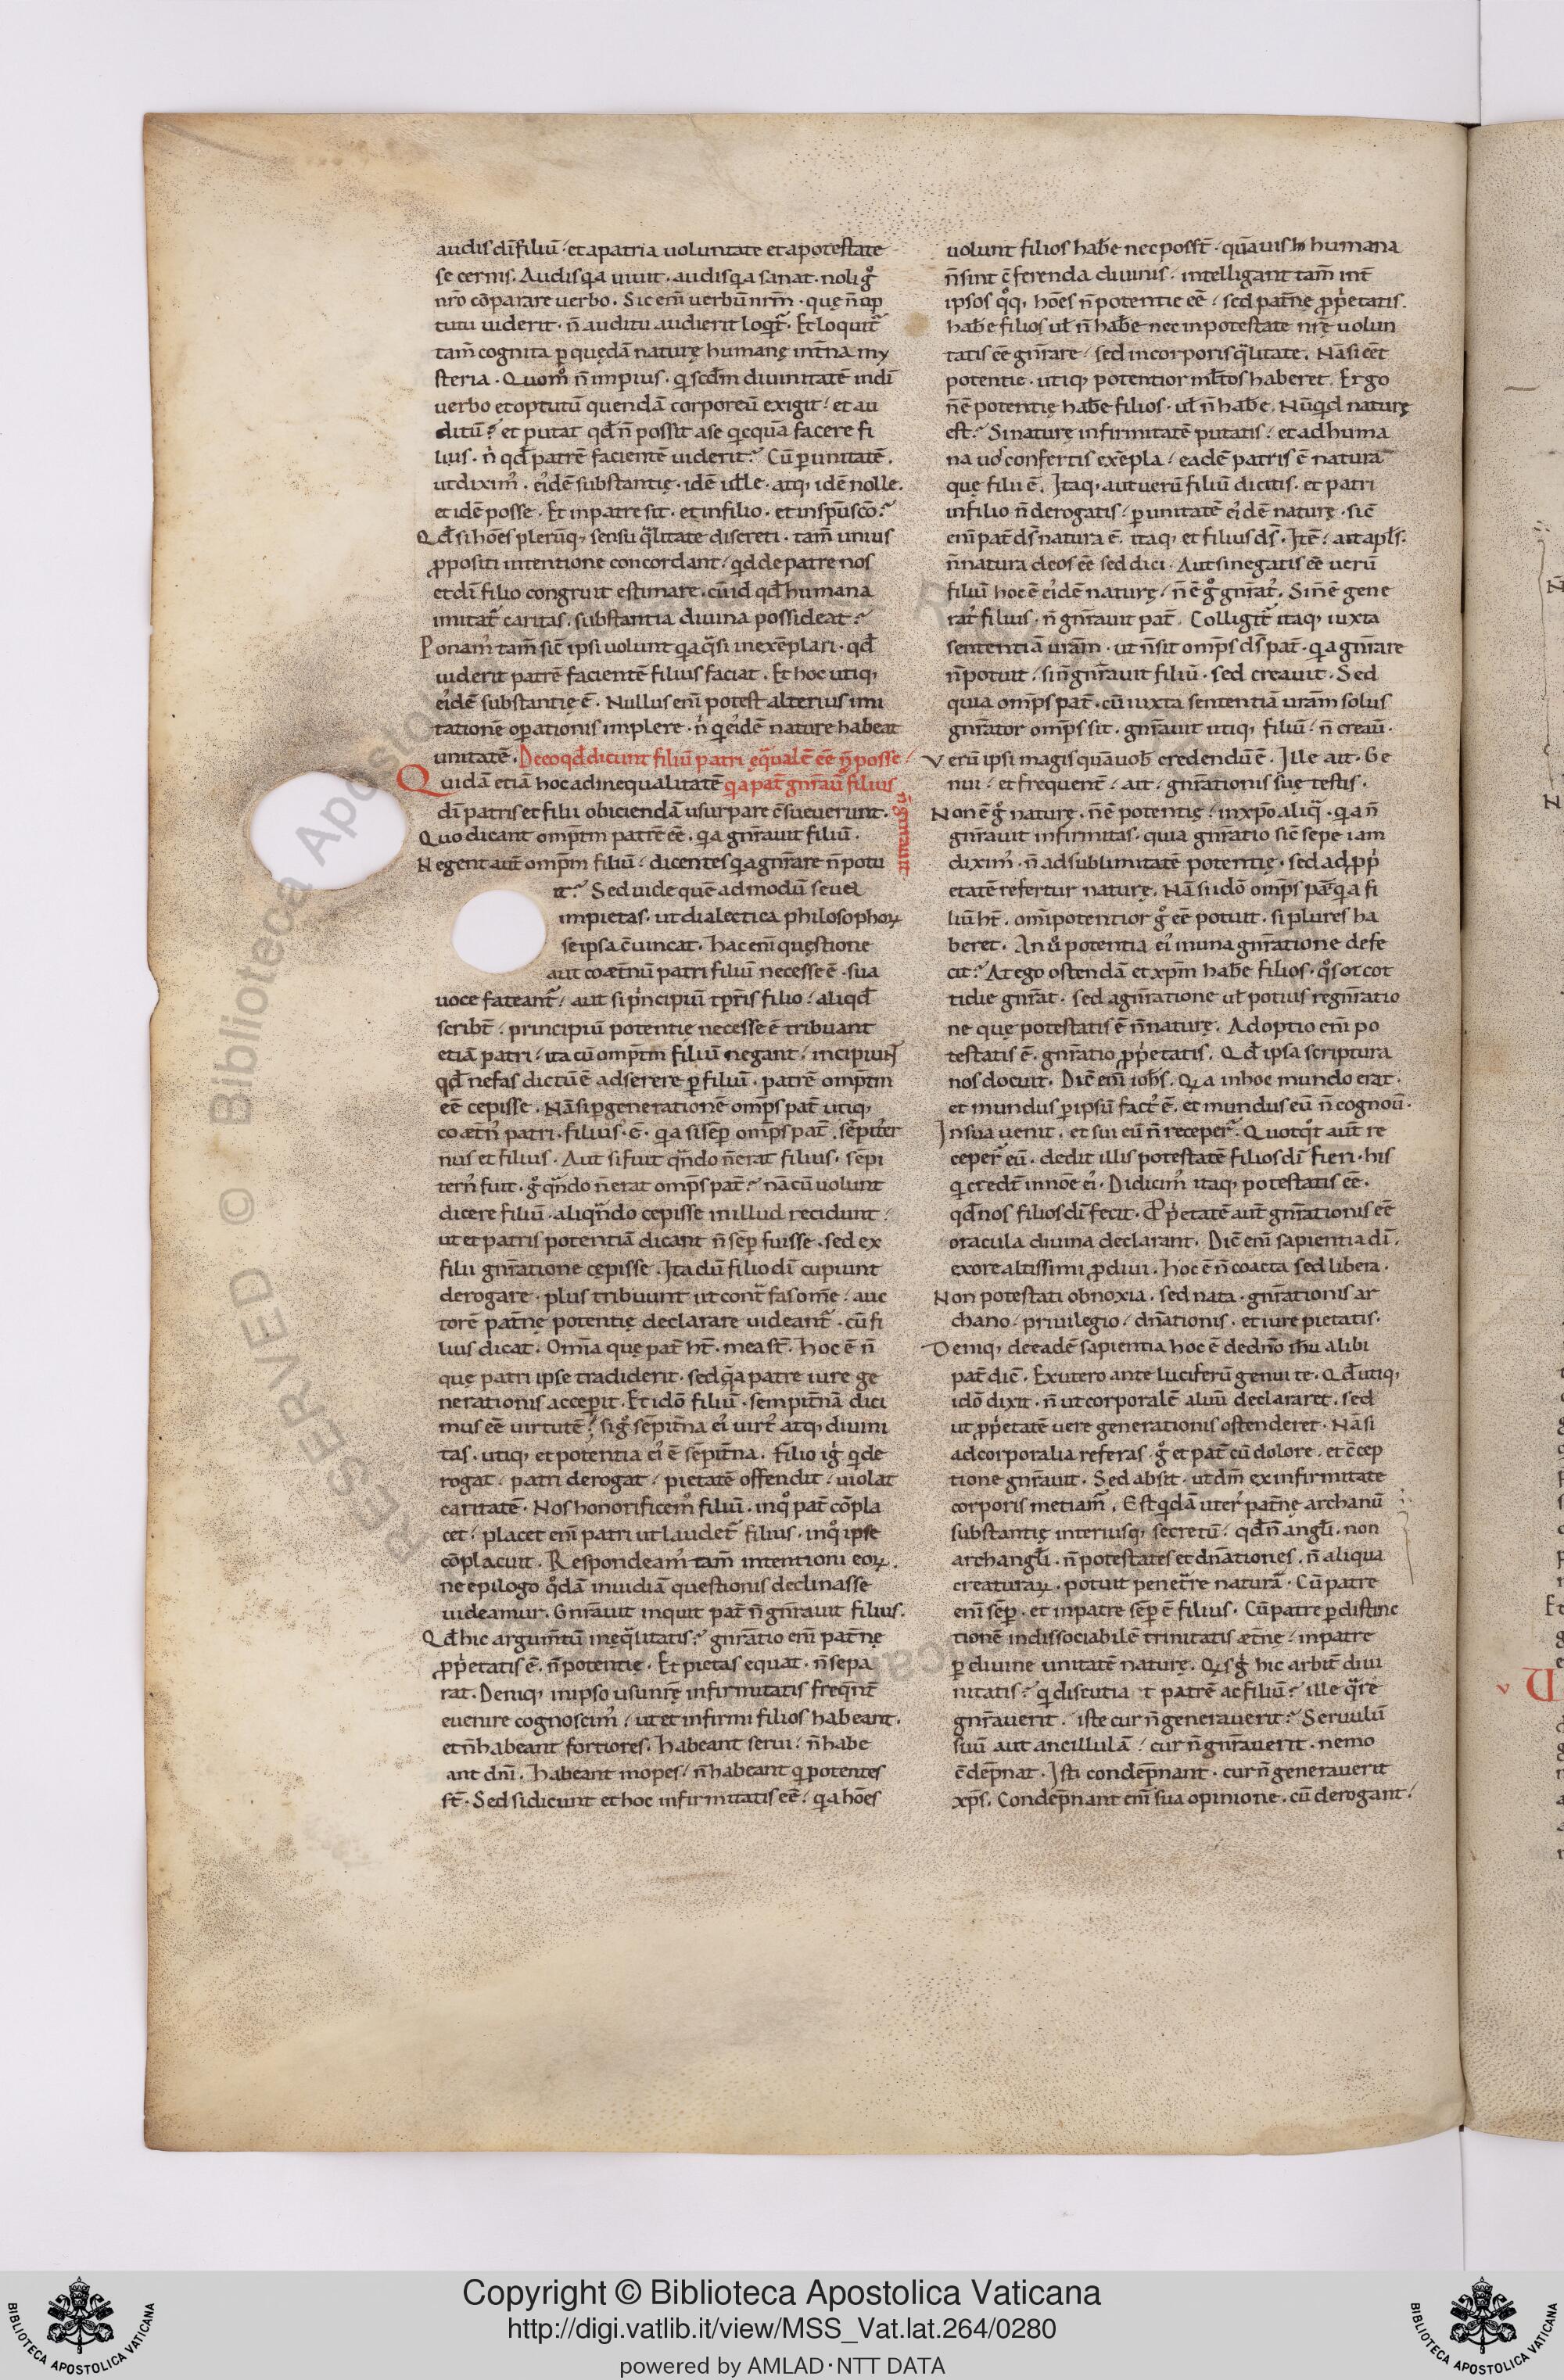 audis dī filiū. et a patria uoluntate et a potestate
se cernis. Audis q̄a uiuit. audis q̄a sanat. noli gͦ
nr̄o cōparare uerbo. Sic eni̅ uerbū nr̄m. quę n̄ up
tutu uiderit. n̄ auditu audierit loqt̄. Et loquit̄
tam̄ cognita ꝑ quędā naturę humanę int̄na my
steria. Quomͦ n̄ impius. qͥ scd̄m diuinitatē in dī
uerbo et optutū quendā corporeū exigit. et au
ditū? et putat qđ n̄ possit a se qͥcquā facere fi
lius. nͥ qđ patrē facientē uiderit? Cū ꝑ unitatē.
ut diximꝰ. eiꝰdē substantię. idē uelle. atq; idē nolle.
et idē posse. Et in patre sit. et in filio. et in sp̄u sc̄o?
Qđ si hoēs plerūq; sensu qͣlitate discreti. tam̄ unius
ꝓpositi intentione concordant. qͥd de patre nos
et dī filio congruit estimare. cū id qđ humana
imitat̄ caritas. substantia diuina possideat?
Ponamꝰ tam̄ sic̄ ipsi uolunt q̄a qͣsi in exēplari. qđ
uiderit patrē facientē filius faciat. Et hoc utiq;
eiꝰdē substantię ē. Nullus eni̅ potest alterius imi
tationē oꝑationis implere. nͥ qͥ eiꝰdē nature habeat
unitatē. De eo qđ dicunt filiū patri ęqͣualē eē n̄ posse
Quidā etiā hoc ad inequalitatē q̄a pat̄ gn̄rauit filius
n̄ gn̄rauit.
dī patris et filii obiciendā usurpare c̄sueuerunt.
Quo dicant omp̄tm patrē eē. q̄a gn̄rauit filiū.
Negent aut̄ omp̄m filiū. dicentes q̄a gn̄rare n̄ potu
it? Sed uide quē ad modū seuel
impietas. ut dialectica philosophoꝝ
se ipsa c̄uincat. Hac eni̅ quęstione
aut coæt̄nū patri filiū necesse ē. sua
uoce fateant̄. aut si pͥncipiū tp̄ris filio. aliqđ
scribt̄. principiū potentię necesse ē tribuant
etiā patri. ita cū omp̄tm filiū negant. incipiunt
qđ nefas dictū ē adserere ꝑ filiū. patrē omp̄tm
eē cepisse. Nā si ꝑ generationē omp̄s pat̄ utiq;
coæt̄nꝰ patri. filius. ē. q̄a si sēꝑ omp̄s pat̄. sēpiter
nus et filius. Aut si fuit qn̄do n̄ erat filius. sēpi
ternꝰ fuit. gͦ qn̄do n̄ erat omp̄s pat̄? nā cū uolunt
dicere filiū. aliqn̄do cepisse in illud recidunt.
ut et patris potentiā dicant n̄ sēꝑ fuisse. sed ex
filii gn̄ratione cępisse. Ita dū filio dī cupiunt
derogare. plus tribuunt ut contͣ fas om̄e. auc
torē pat̄nę potentię declarare uideant̄. cū fi
lius dicat. Omīa quę pat̄ ht̄. mea st̄. Hoc ē n̄
que patri ipse tradiderit. sed q̄ a patre iure ge
nerationis acceꝑit. Et idō filiū. sempit̄nā dici
mus eē uirtutē? si gͦ sēpit̄na eiꝰ uirtꝰ atq; diuini
tas. utiq; et potentia eiꝰ ē sēpit̄na. Filio igͥ qͥ de
rogat. patri derogat. pietatē offendit. uiolat
caritatē. Nos honorificemꝰ filiū. in qͦ pat̄ cōpla
cet. placet eni̅ patri ut laudet̄ filius. in qͦ ipse
cōplacuit. Respondeamꝰ tam̄ intentioni eoꝝ.
ne epilogo qͦdā inuidiā questionis declinasse
uideamur. Gn̄rauit inquit pat̄ n̄ gn̄rauit filius.
Qđ hic argum̄tū inęqͣlitatis? gn̄ratio eni̅ pat̄nę
ꝓpͥetatis ē. n̄ potentię. Et pietas equat. n̄ sepa
rat. Deniq; in ipso usu nr̄ę infirmitatis freqn̄t
euenire cognoscimꝰ. ut et infirmi filios habeant.
et n̄ habeant fortiores. Habeant serui. n̄ habe
ant dn̄i. Habeant inopes. n̄ habeant qͥ potentes
st̄. Sed si dicunt et hoc infirmitatis eē. q̄a hoēs
uolunt filios hab̄e nec posst̄. quāuis h humana
n̄ sint c̄ferenda diuinis. intelligant tam̄ int̄
ipsos qͦq; hoēs n̄ potentie eē. sed pat̄nę ꝓpͥetatis.
hab̄e filios ul̄ n̄ hab̄e nec in potestate nr̄ę uolun
tatis eē gn̄rare. sed in corporis qͣlitate. Nā si eēt
potentie. utiq; potentior ml̄tos haberet. Ergo
n̄ ē potentię hab̄e filios. ul̄ n̄ hab̄e. Nūqͥd naturę
est? Si naturę infirmitatē putatis. et ad huma
na uoͦ confertis exēpla. eadē patris ē natura
quę filii ē. Itaq; aut uerū filiū dicitis. et patri
in filio n̄ derogatis. ꝑ unitatē eiꝰdē naturę. sic̄
eni̅ pat̄ ds̄ natura ē. itaq; et filius ds̄. Itē. ait apl̄s.
n̄ natura deos eē sed dici. Aut si negatis eē uerū
filiū hoc ē eiꝰdē naturę. n̄ ē gͦ gn̄ratꝰ. Si n̄ ē gene
ratꝰ filius. n̄ gn̄rauit pat̄. Colligit̄ itaq; iuxta
sententiā uram̄. ut n̄ sit omp̄s ds̄ pat̄. q̄a gn̄rare
n̄ potuit. si n̄ gn̄rauit filiū. sed creauit. Sed
quia omp̄s pat̄. cū iuxta sententiā uram̄ solus
gn̄rator omp̄s sit. gn̄rauit utiq; filiū. n̄ creaū.
Verū ipsi magis quā uob̄ credendū ē. Ille ait. Ge
nui. et frequent̄. ait. gn̄rationis suę testis.
Non ē gͦ naturę. n̄ ē potentię. in xp̄o aliqͣ. q̄a n̄
gn̄rauit infirmitas. quia gn̄ratio sic̄ sepe iam
diximꝰ. n̄ ad sublimitatē potentię. sed ad ꝓpͥ
etatē refertur naturę. Nā si idō omp̄s pat̄ q̄a fi
liū ht̄. omīpotentior gͦ eē potuit. si plures ha
beret. An uͦ potentia eiꝰ in una gn̄ratione defe
cit? At ego ostendā et xp̄m hab̄e filios. qͦs cot
tidie gn̄rat. sed a gn̄ratione ul̄ potius regn̄ratio
ne quę potestatis ē n̄ naturę. Adoptio eni̅ po
testatis ē. gn̄ratio ꝓpͥetatis. Qđ ipsa scriptura
nos docuit. Dic̄ eni̅ ioh̄s. Q̄a in hoc mundo erat.
et mundus ꝑ ipsū factꝰ ē. et mundus eū n̄ cognoū.
In sua uenit. et sui eū n̄ receper̄. Quotqͦt aut̄ re
ceper̄ eū. dedit illis potestatē filios dī fieri. his
qͥ credt̄ in noē eiꝰ. Didicimꝰ itaq; potestatis eē.
qđ nos filios dī fecit. Ꝓpͥetatē aut̄ gn̄rationis eē
oracula diuina declarant. Dic̄ eni̅ sapientia dī.
ex ore altissimi ꝓdiui. Hoc ē n̄ coacta sed libera.
Non potestati obnoxia. sed nata. gn̄rationis ar
chano. priuilegio. dn̄ationis. et iure pietatis.
Deniq; de eadē sapientia hoc ē de dn̄o ih̄u alibi
pat̄ dic̄. Ex utero ante luciferū genui te. Qđ utiq;
idō dixit. n̄ ut corporalē aluū declararet. sed
ut ꝓpͥetatē uere generationis ostenderet. Nā si
ad corporalia referas. gͦ et pat̄ cū dolore. et c̄cep
tione gn̄rauit. Sed absit. ut dm̄ ex infirmitate
corporis metiam̄. Est qͥdā uterꝰ pat̄nę archanū
substantię interiusq; secretū. qđ n̄ angl̄i. non
archangl̄i. n̄ potestates et dn̄ationes. n̄ aliqua
creaturaꝝ. potuit penetͣre naturā. Cū patre
eni̅ sēꝑ. et in patre sēꝑ ē filius. Cū patre ꝑ distinc
tionē indissociabilē trinitatis æt̄nę. in patre
ꝑ diuine unitatē naturę. Qͥs gͥ hic arbit̄ diui
nitatis? qͥ discutiat patrē ac filiū? ille qͣre
gn̄rauerit. iste cur n̄ generauerit? Seruulū
suū aut ancillulā. cur n̄ gn̄rauerit. nemo
c̄dēpnat. Isti condēpnant. cur n̄ generauerit
xp̄s. Condēpnant eni̅ sua opinione. cū derogant.
RESERVED © Biblioteca Apostolica Vaticana
Copyright © Biblioteca Apostolica Vaticana
http://digi.vatlib.it/view/MSS_Vat.lat.264/0280
powered by AMLAD·NTT DATA
BIBLIOTECA APOSTOLICA VATICANA
BIBLIOTECA APOSTOLICA VATICANA